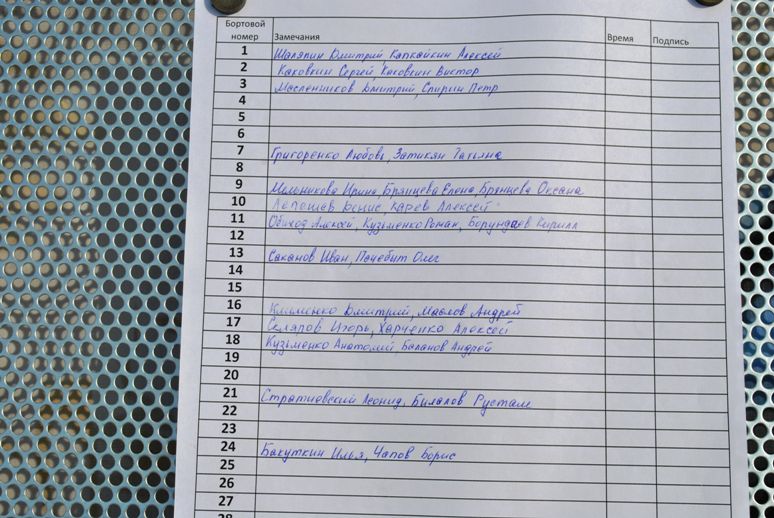 Бортовой номер Замечания Время Подпись
1 Шаляпин Дмитрий Капкайкин Алексей
2 Каковкин Сергей, Каковкин Виктор
3 Масленников Дмитрий, Спирин Петр
4
5
6
7 Григоренко Любовь, Затикян Татьяна
8
9 Мельникова Ирина, Брянцева Елена, Брянцева Оксана
10 Лепошев Денис, Карев Алексей
11 Обиход Алексей, Кузьменко Роман, Борундаев Кирилл
12
13 Саканов Иван, Пачебит Олег
14
15
16 Клименко Дмитрий, Маслов Андрей
17 Скляров Игорь, Харченко Алексей
18 Кузьменко Анатолий Баланов Андрей
19
20
21 Стратиевский Леонид, Билалов Рустам
22
23
24 Бакуткин Илья, Чапов Борис
25
26
27
28